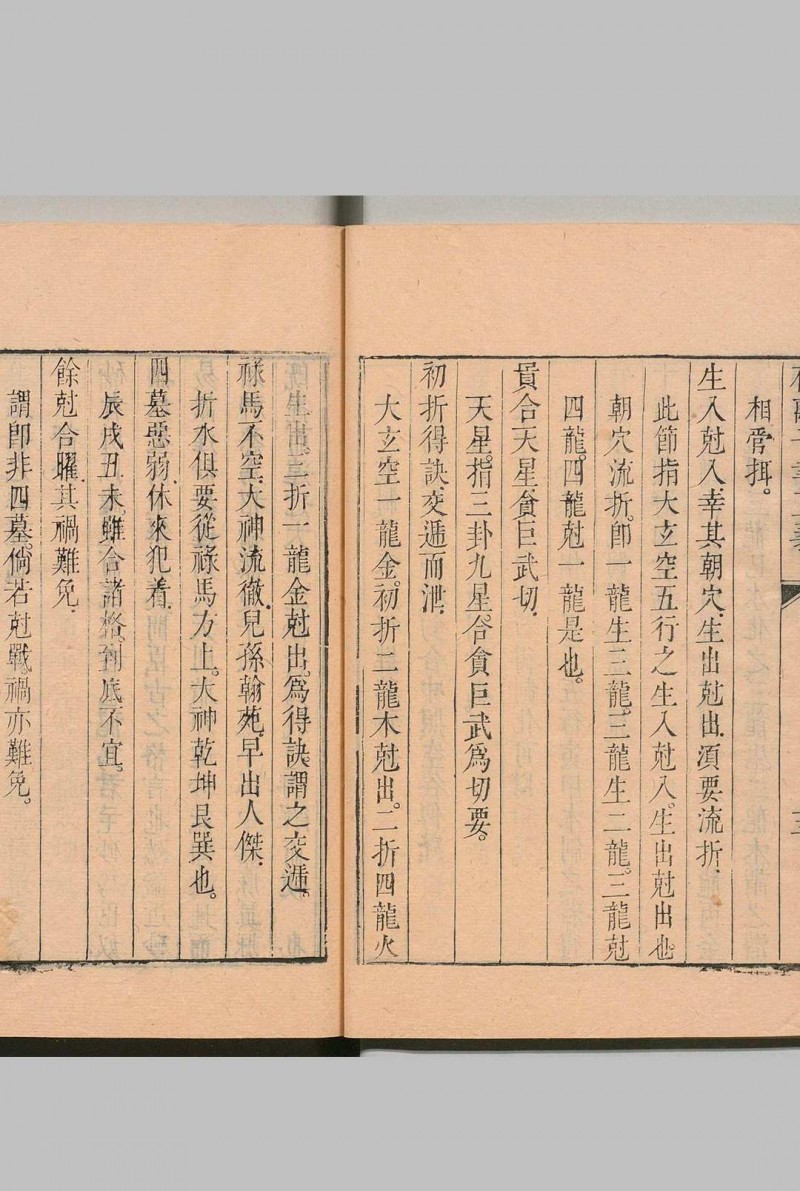 相胥挕。
生入尅入、幸其朝穴、生出尅出、須要流折、
此節指大玄空五行之生入尅入。生出尅出也。
朝穴流折。卽一龍生三龍。三龍生二龍。三龍尅
四龍。四龍尅一龍是也。
貴合天星、貪巨武切、
天星。指三卦九星。合貪巨武爲切要。
初折得訣、交遞而泄、
大玄空一龍金。初折二龍木尅出。二折四龍火
生出。三折一龍金尅出。爲得訣。謂之交遞。
祿馬不空、大神流徹、兒孫翰苑、早出人傑、
折水俱要從祿馬方上。大神乾坤艮巽也。
四墓惡弱、休來犯着、
辰戌丑未。雖合諸格。到底不宜。
餘尅合曜、其禍難免、
謂卽非四墓。倘若尅戰。禍亦難免。